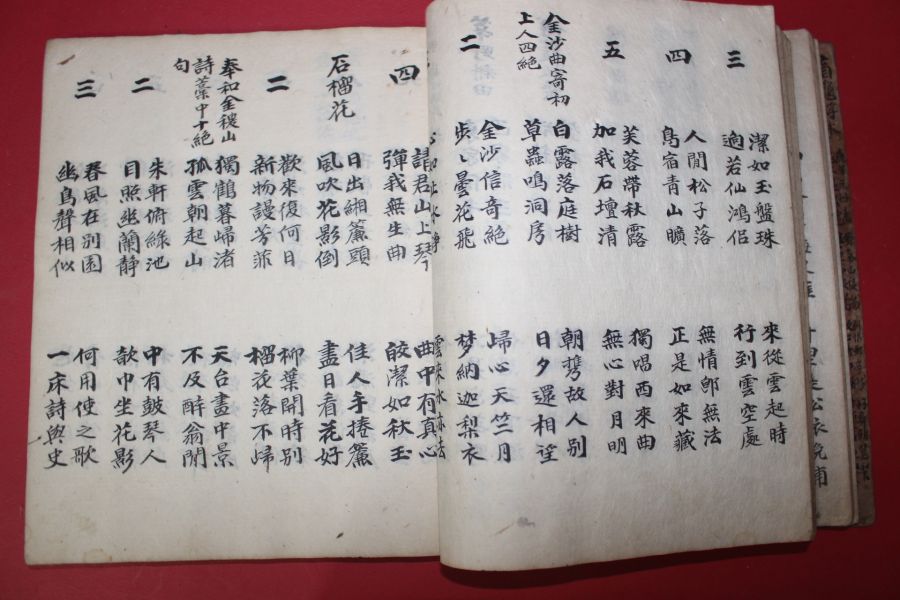 三
潔如玉盤珠 來從雲起時
逈若仙鴻侶 行到雲空處
四
人間松子落 無情郎無法
鳥宿青山曠 正是如來藏
五
芙蓉帶秋露 獨唱西來曲
加我石壇清 無心對月明
金沙曲寄初
上人四絶
白露落庭樹 朝携故人別
草蟲鳴洞房 日夕還相望
二
金沙信奇絶 歸心天竺月
步〻曇花飛 梦納迦梨衣
雲來水亦去
四
請君山上琴 曲中有真心
彈我無生曲 皎潔如秋玉
石榴花
日出緗簾頭 佳人手捲簾
風吹花影倒 盡日看花好
二
歡來復何日 柳葉開時別
新物謾芳菲 榴花落不歸
奉和金稷山
詩藁中十絶
句
獨鶴暮歸渚 天台畫中景
孤雲朝起山 不及醉翁閒
二
朱軒俯綠池 中有鼓琴人
日照幽蘭靜 欹巾坐花影
三
春風在別園 何用使之歌
幽鳥聲相似 一床詩與史